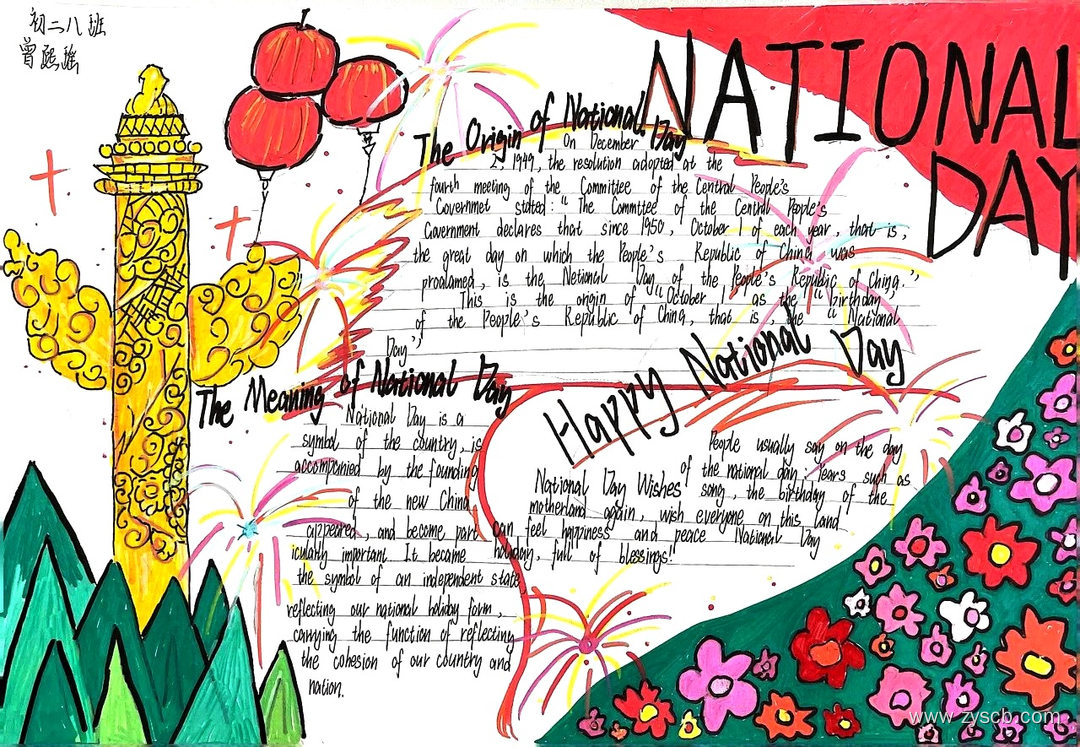 初二八班
曾熙瑶
NATIONAL
DAY
The Origin of National Day
On December
2, 1949, the resolution adopted at the
fourth meeting of the Committee of the Central People's
Governmet stated: "The Committee of the Central People's
Government declares that since 1950, October of each year, that is,
the great day on which the People's Republic of China was
proalamed, is the National Day of the People's Republic of China."
This is the origin of "October 1" as the "birthday
of the People's Republic of China, that is the "National
Day",
The Meaning of National Day
National Day is a
symbol of the country, is
accompanied by the founding
of the new China
appeared, and become part
icularly important. It became
the symbol of an independent state,
reflecting our national holiday form,
carrying the function of reflecting
the cohesion of our country and
nation.
Happy National Day
National Day Wishes
People usually say on the day
of the national day, years, such as
song, the birthday of the
motherland again, wish everyone on this land
can feel happiness and peace National Day
holiday, full of blessings!"
www.zyscb.com